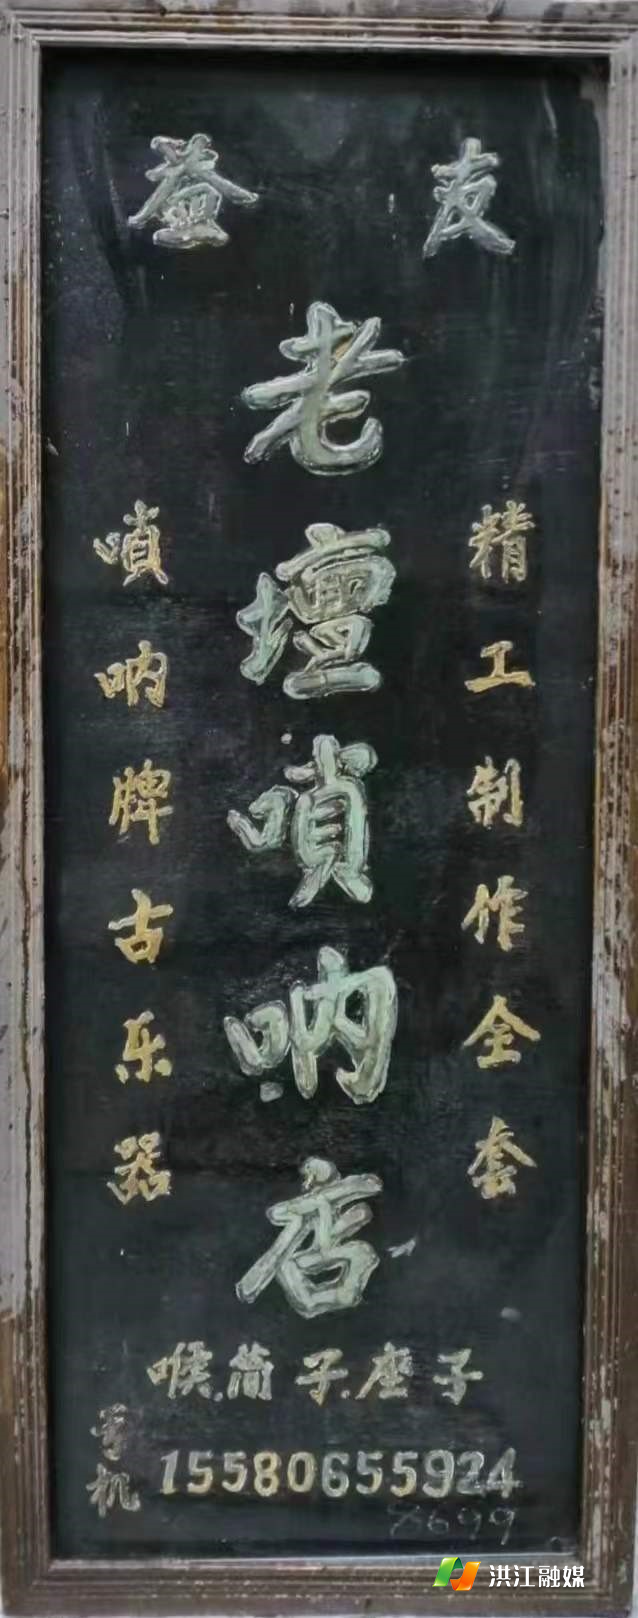 益友
精工制作全套
老壇嗩呐店
嗩呐牌古乐器
喉.筒子.座子
手机 15580655924
8699
洪江融媒